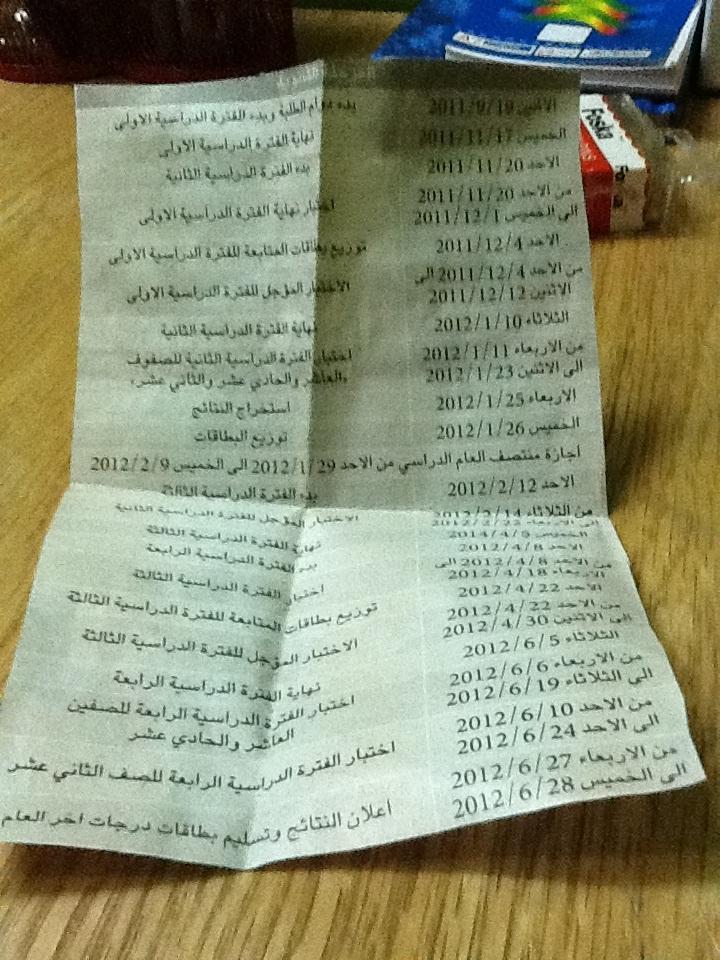 الاثنين 2011/9/19 بدء دوام الطلبة وبدء الفترة الدراسية الاولى
الخميس 2011/11/17 نهاية الفترة الدراسية الاولى
الاحد 2011/11/20 بدء الفترة الدراسية الثانية
من الاحد 2011/11/20
الى الخميس 2011/12/1 اختبار نهاية الفترة الدراسية الاولى
الاحد 2011/12/4 توزيع بطاقات المتابعة للفترة الدراسية الاولى
من الاحد 2011/12/4 الى
الاثنين 2011/12/12 الاختبار المؤجل للفترة الدراسية الاولى
الثلاثاء 2012/1/10 نهاية الفترة الدراسية الثانية
من الاربعاء 2012/1/11 اختبار الفترة الدراسية الثانية للصفوف
الى الاثنين 2012/1/23 «العاشر والحادي عشر والثاني عشر»
الاربعاء 2012/1/25 استخراج النتائج
الخميس 2012/1/26 توزيع البطاقات
اجازة منتصف العام الدراسي من الاحد 2012/1/29 الى الخميس 2012/2/9
الاحد 2012/2/12 بدء الفترة الدراسية الثالثة
من الثلاثاء 2012/2/14
الى الاربعاء 2012/2/22 الاختبار المؤجل للفترة الدراسية الثانية
الخميس 2014/4/5 نهاية الفترة الدراسية الثالثة
الاحد 2012/4/8 بدء الفترة الدراسية الرابعة
من الاحد 2012/4/8 الى
الاربعاء 2012/4/18 اختبار الفترة الدراسية الثالثة
الاحد 2012/4/22 توزيع بطاقات المتابعة للفترة الدراسية الثالثة
من الاحد 2012/4/22
الى الاثنين 2012/4/30 الاختبار المؤجل للفترة الدراسية الثالثة
الثلاثاء 2012/6/5 نهاية الفترة الدراسية الرابعة
من الاربعاء 2012/6/6 اختبار الفترة الدراسية الرابعة للصفين
الى الثلاثاء 2012/6/19 العاشر والحادي عشر
من الاحد 2012/6/10
الى الاحد 2012/6/24 اختبار الفترة الدراسية الرابعة للصف الثاني عشر
من الاربعاء 2012/6/27
الى الخميس 2012/6/28 اعلان النتائج وتسليم بطاقات درجات اخر العام
Foska